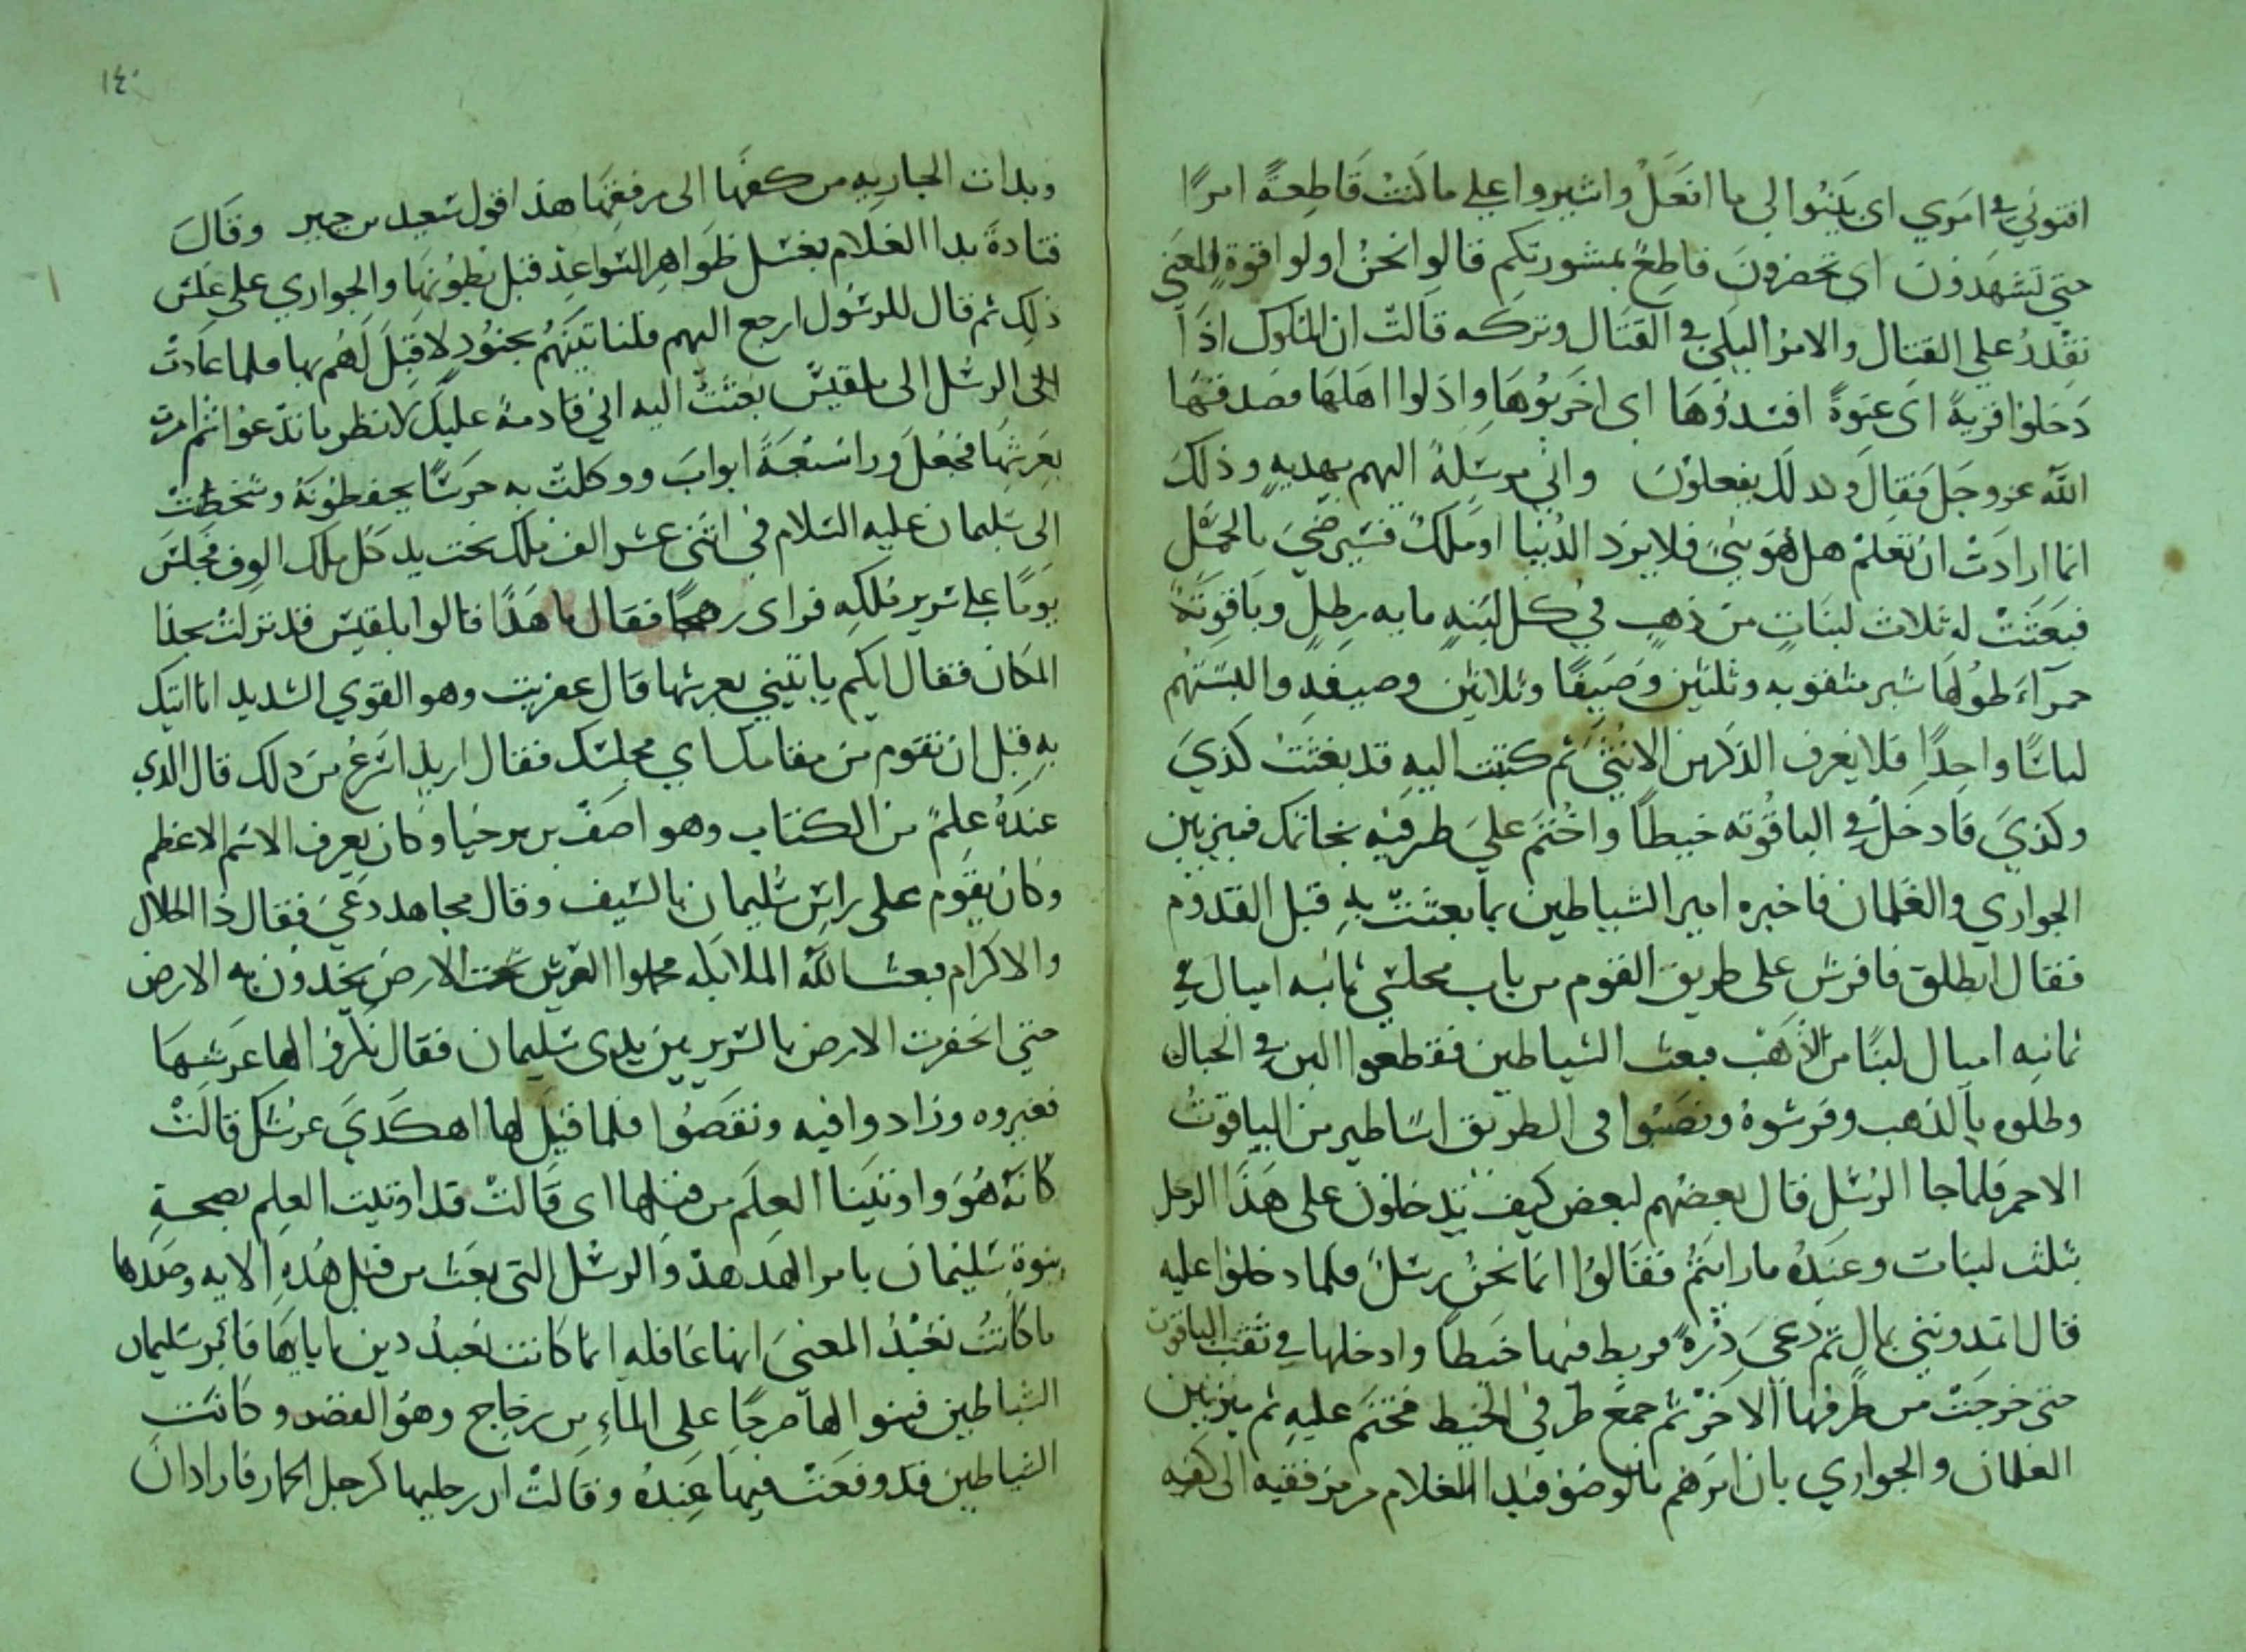 افتوني في امري اي بَيّنُوا لي ما افعَلُ واشيروا علي ما كنتُ قَاطِعَةً امرًا
حتي تَشهَدُون اي تحضرون قاطِعً بمشورتكم قالوا نحنُ اولوا قوةٍ المعني
نقدرُ علي القتال والامرُ اليكِ في القتال وتركه قالت ان الملوك اذا
دَخلوا قريةً اي عنوةً افسدُوهَا اي اخربُوهَا واذلوا اهلها فصدقها
الله عز وجل فقال وكذلك يفعلون واني مرسِلةُ اليهم بهديه وذلك
انما ارادت ان تعلمْ هل هوَ نبيً فلا يريد الدُنيا او مَلكً فسيرضيَ بالحمْل
فبعَثَتْ له ثلاث لبنَاتٍ من ذهبٍ في كل لبنهٍ مايه رطلٍ وياقوتَةً
حمرآءَ طولُها شبر مثقوبه وثلثين وصَيفًا وثلاثين وصيفةً والبستهُم
لباسًا واحدًا فلا يعرف الذكر من الانثي ثم كتبت اليه قد بعَثت كذيَ
وكذيَ فادخلْ في الياقوته خيطاً واختم عليَ طرفيه بخاتمك فميز بين
الجواري والغلمان فاخبره امير الشياطين بما بعثتْ بهِ قبل القدوم
فقال انطلق فافرش علي طريق القوم من باب مجلسي ثمانيه اميال في
ثمانيه اميال لبنًا من الذهب فبعث الشياطين فقطعوا اللبن في الجبال
وطلوه بالذهب وفرشوهُ ونصَبُوا في الطريق اساطير من الياقوتُ
الاحمر فلما جا الرُسُل قال بعضهم لبعض كيف تدخلون علي هَذا الرجل
بثلث لبنات وعنَدهُ ما رايتمُ فقَالوُا انما نحنُ رسلً فلما دخلوا عليه
قال اتمدونني بمال ثم دعيَ ذَرةً فربط فيها خيطاً وادخلها في ثقب الياقوت
حتي خرجَتْ من طَرفها الاخَرْ ثم جمع طرفي الخيط فختم عليهِ ثم ميز بين
الغلمان والجواري بان امرَهم بالوضوْ فبدا الغلام من مرفقيه الي كفيه
١٤٠
وبدات الجاريه من كفها الي مرفقها هذا قول سعيد بن جبير وقَالَ
قتادةَ بدا الغلام بغسل ظواهر السَواعد قبل بُطونها والجواري علي عكس
ذلك ثم قال للرسُول ارجع اليهم فلناتينَّهُم بجنُودٍ لا قبَل لَهُم بها فلما عَادتْ
الي الرسل الي بلقيسَ بعثَتْ اليه اني قادمةً عليك لانظر ما تدعوا ثم امرت
بعَرشِها فجُعلَ ورا سَبعَةَ ابوابَ ووكلتْ به حرَسًا يحفظونَهُ وشخصَتْ
الي سَليمان عليه السلام في اثني عشر الف ملك تحت يد كل ملك الوف فجلسَ
يومًا علي سَرير مُلكِه فراي رهجًا فقال ما هَذا قالوا بلقيس قد نزلت بهذا
المكان فقال ايكم ياتيني بعرشها قال عفريت وهو القوي الشديد انا اتيك
بهِ قبل ان تقوم من مقامك اي مجلسَك فقال اريد اسَرعُ من ذلك قال الذي
عندَهُ علِمً من الكتاب وهو اصَفً بن برخيا وكان يعرف الاسم الاعظم
وكان يقوم علي راسِ سُليمان بالسَيف وقال مجاهد دَعيَ فقال ذا الجلال
والاكرام فبعث الله الملايكه فحملوا العرش تحت الارض يخدون به الارض
حتي انخرقت الارض بالسَرير بين يدي سَليمان فقال نَكّرُوا لها عرشَهَا
فغيروه وزادوا فيه ونقَصُوا فلما قيل لها اهكَذيَ عرشُك قالَتْ
كانَّه هُوَ واوتينَا العلمَ من قبلها اي قَالتْ قد اوتيت العِلم بصحة
نبوةِ سَليمَان بامر الهَدهدْ والرسُل التي بعَث من قبل هُذهِ الايه وصَدها
ما كانتُ تعْبدُ المعنيَ انها عَاقله انما كانت تعَبدُ دين ابايهَا فامر سَليمان
الشياطين فبنوا لها صرحًا علي الماءِ من زجاج وهوُ القصر وكانت
الشياطين قد وقعَتْ فيها عنِدهُ وقالتْ ان رجليها كرجل الحمار فاراد ان